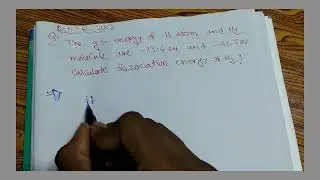 Q: The gso energy of H atom and H2
molecule are -13.6 ev and -31.7 ev
calculate dissociation energy of H2?
H